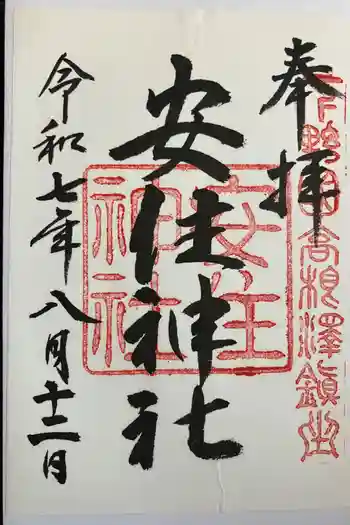 奉拝
下野国高根澤鎮坐
安住神社
安住神社
令和七年八月十二日